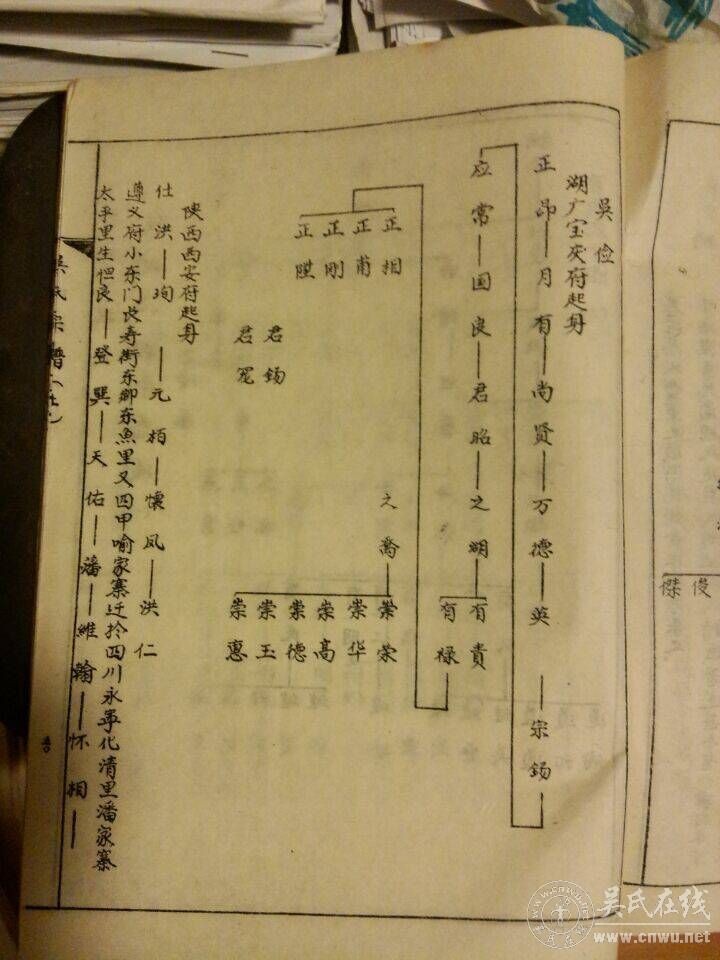 吳俭
湖广宝庆府起身
正昂—月有—尚贤—万德—英—宗錫
应常—国良—君昭—之湖—有貴
有禄
正相
正甫
正剛
正
君錫
君宠
之喬
崇荣
崇华
崇高
崇德
崇玉
崇惠
陝西西安府起身
仕洪—珣—元栢—懷凤—洪仁
遵义府小东门良寿街东御东魚里又四甲喻家寨迁於四川永寧化清里潘家寨
太平里生恒良—登巽—天佑—潘—維翰—怀相—
吳氏宗譜
俊
傑
吴氏在线
www.cnwu.net